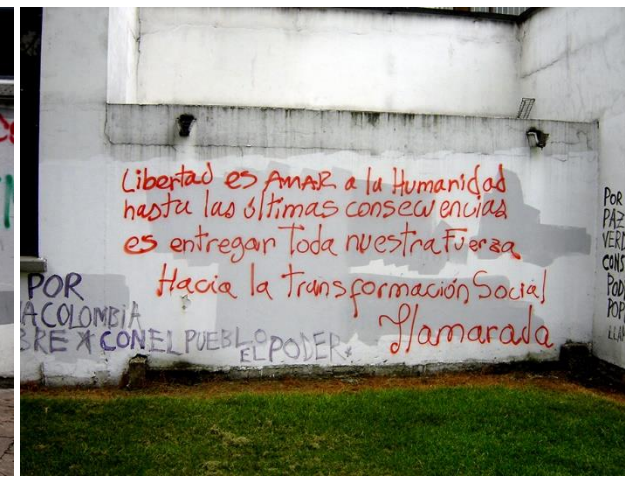 Libertad es AMAR a la Humanidad
hasta las últimas consecuencias
es entregar Toda nuestra Fuerza
Hacia la transformación Social
Llamarada
POR
A COLOMBIA
BRE * CON EL PUEBLO
EL PODER*
POR
PAZ
VERD
CONS
POD
POP
LLAM